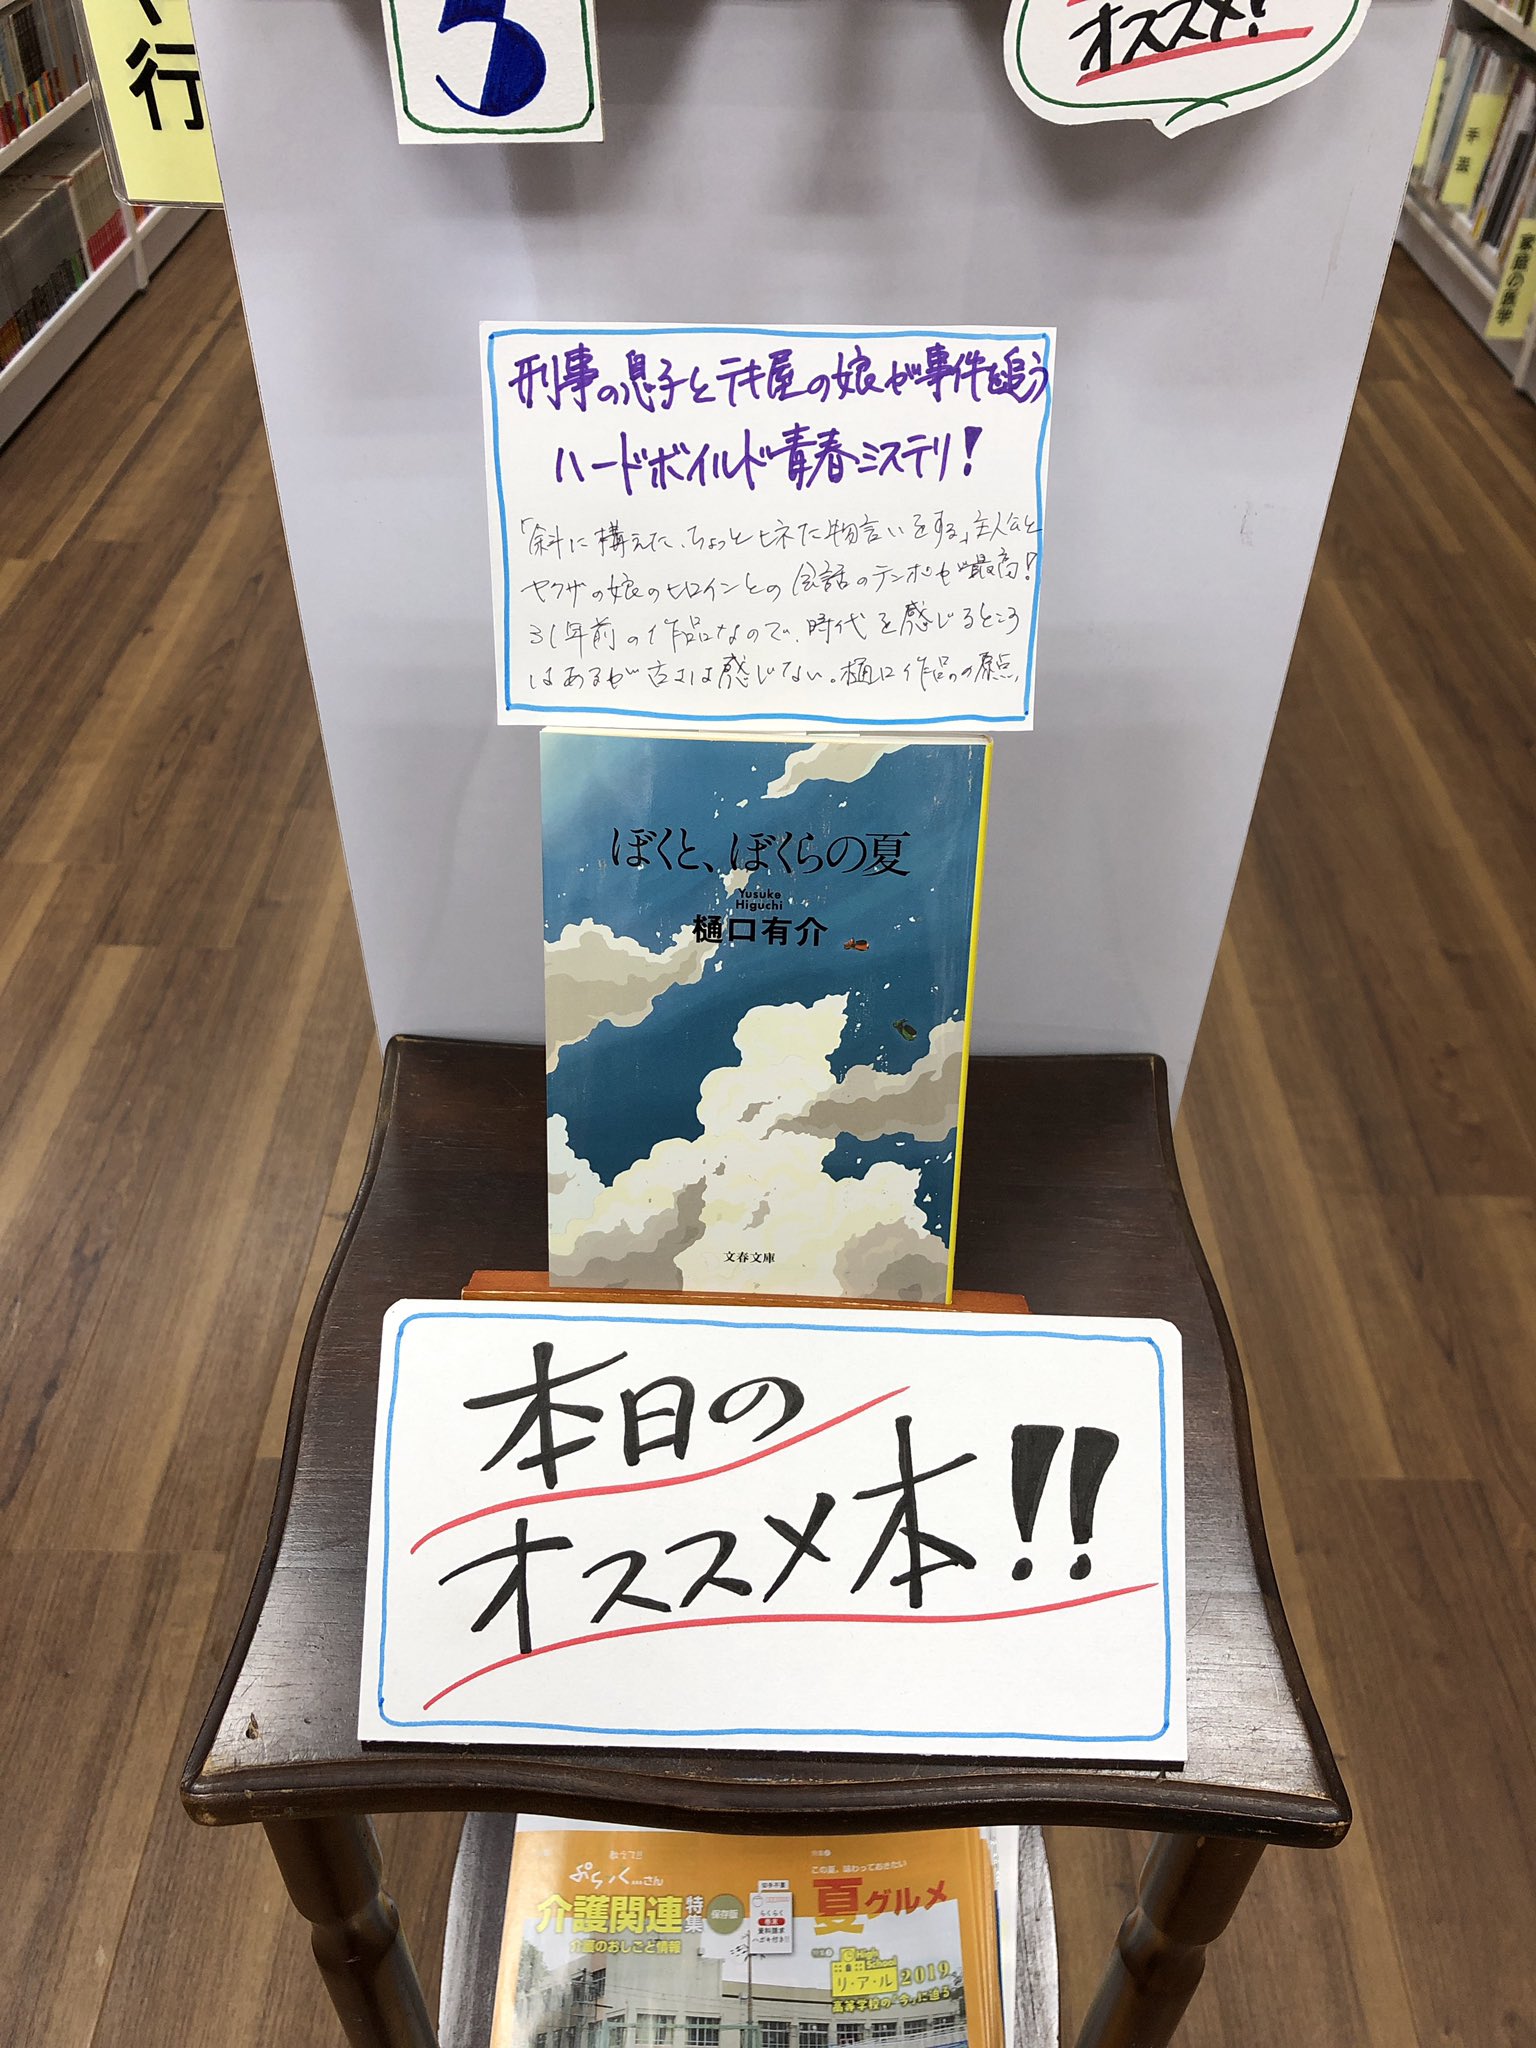 行
オススメ!
手芸
刑事の息子とテキ屋の娘が事件を追う
ハードボイルド青春ミステリ!
「斜に構えた、ちょっとヒネた物言いをする」主人公と
ヤクザの娘のヒロインとの会話のテンポが最高!
31年前の作品なので、時代を感じるところ
はあるが古さは感じない。樋口作品の原点。
ぼくと、ぼくらの夏
Yusuke
Higuchi
樋口有介
文春文庫
本日の
オススメ本!!
ぷらく…さん
介護関連特集
保存版
介護のおしごと情報
この夏、味わっておきたい
夏グルメ
High
School
リ・ア・ル 2019
高等学校の“今”に迫る